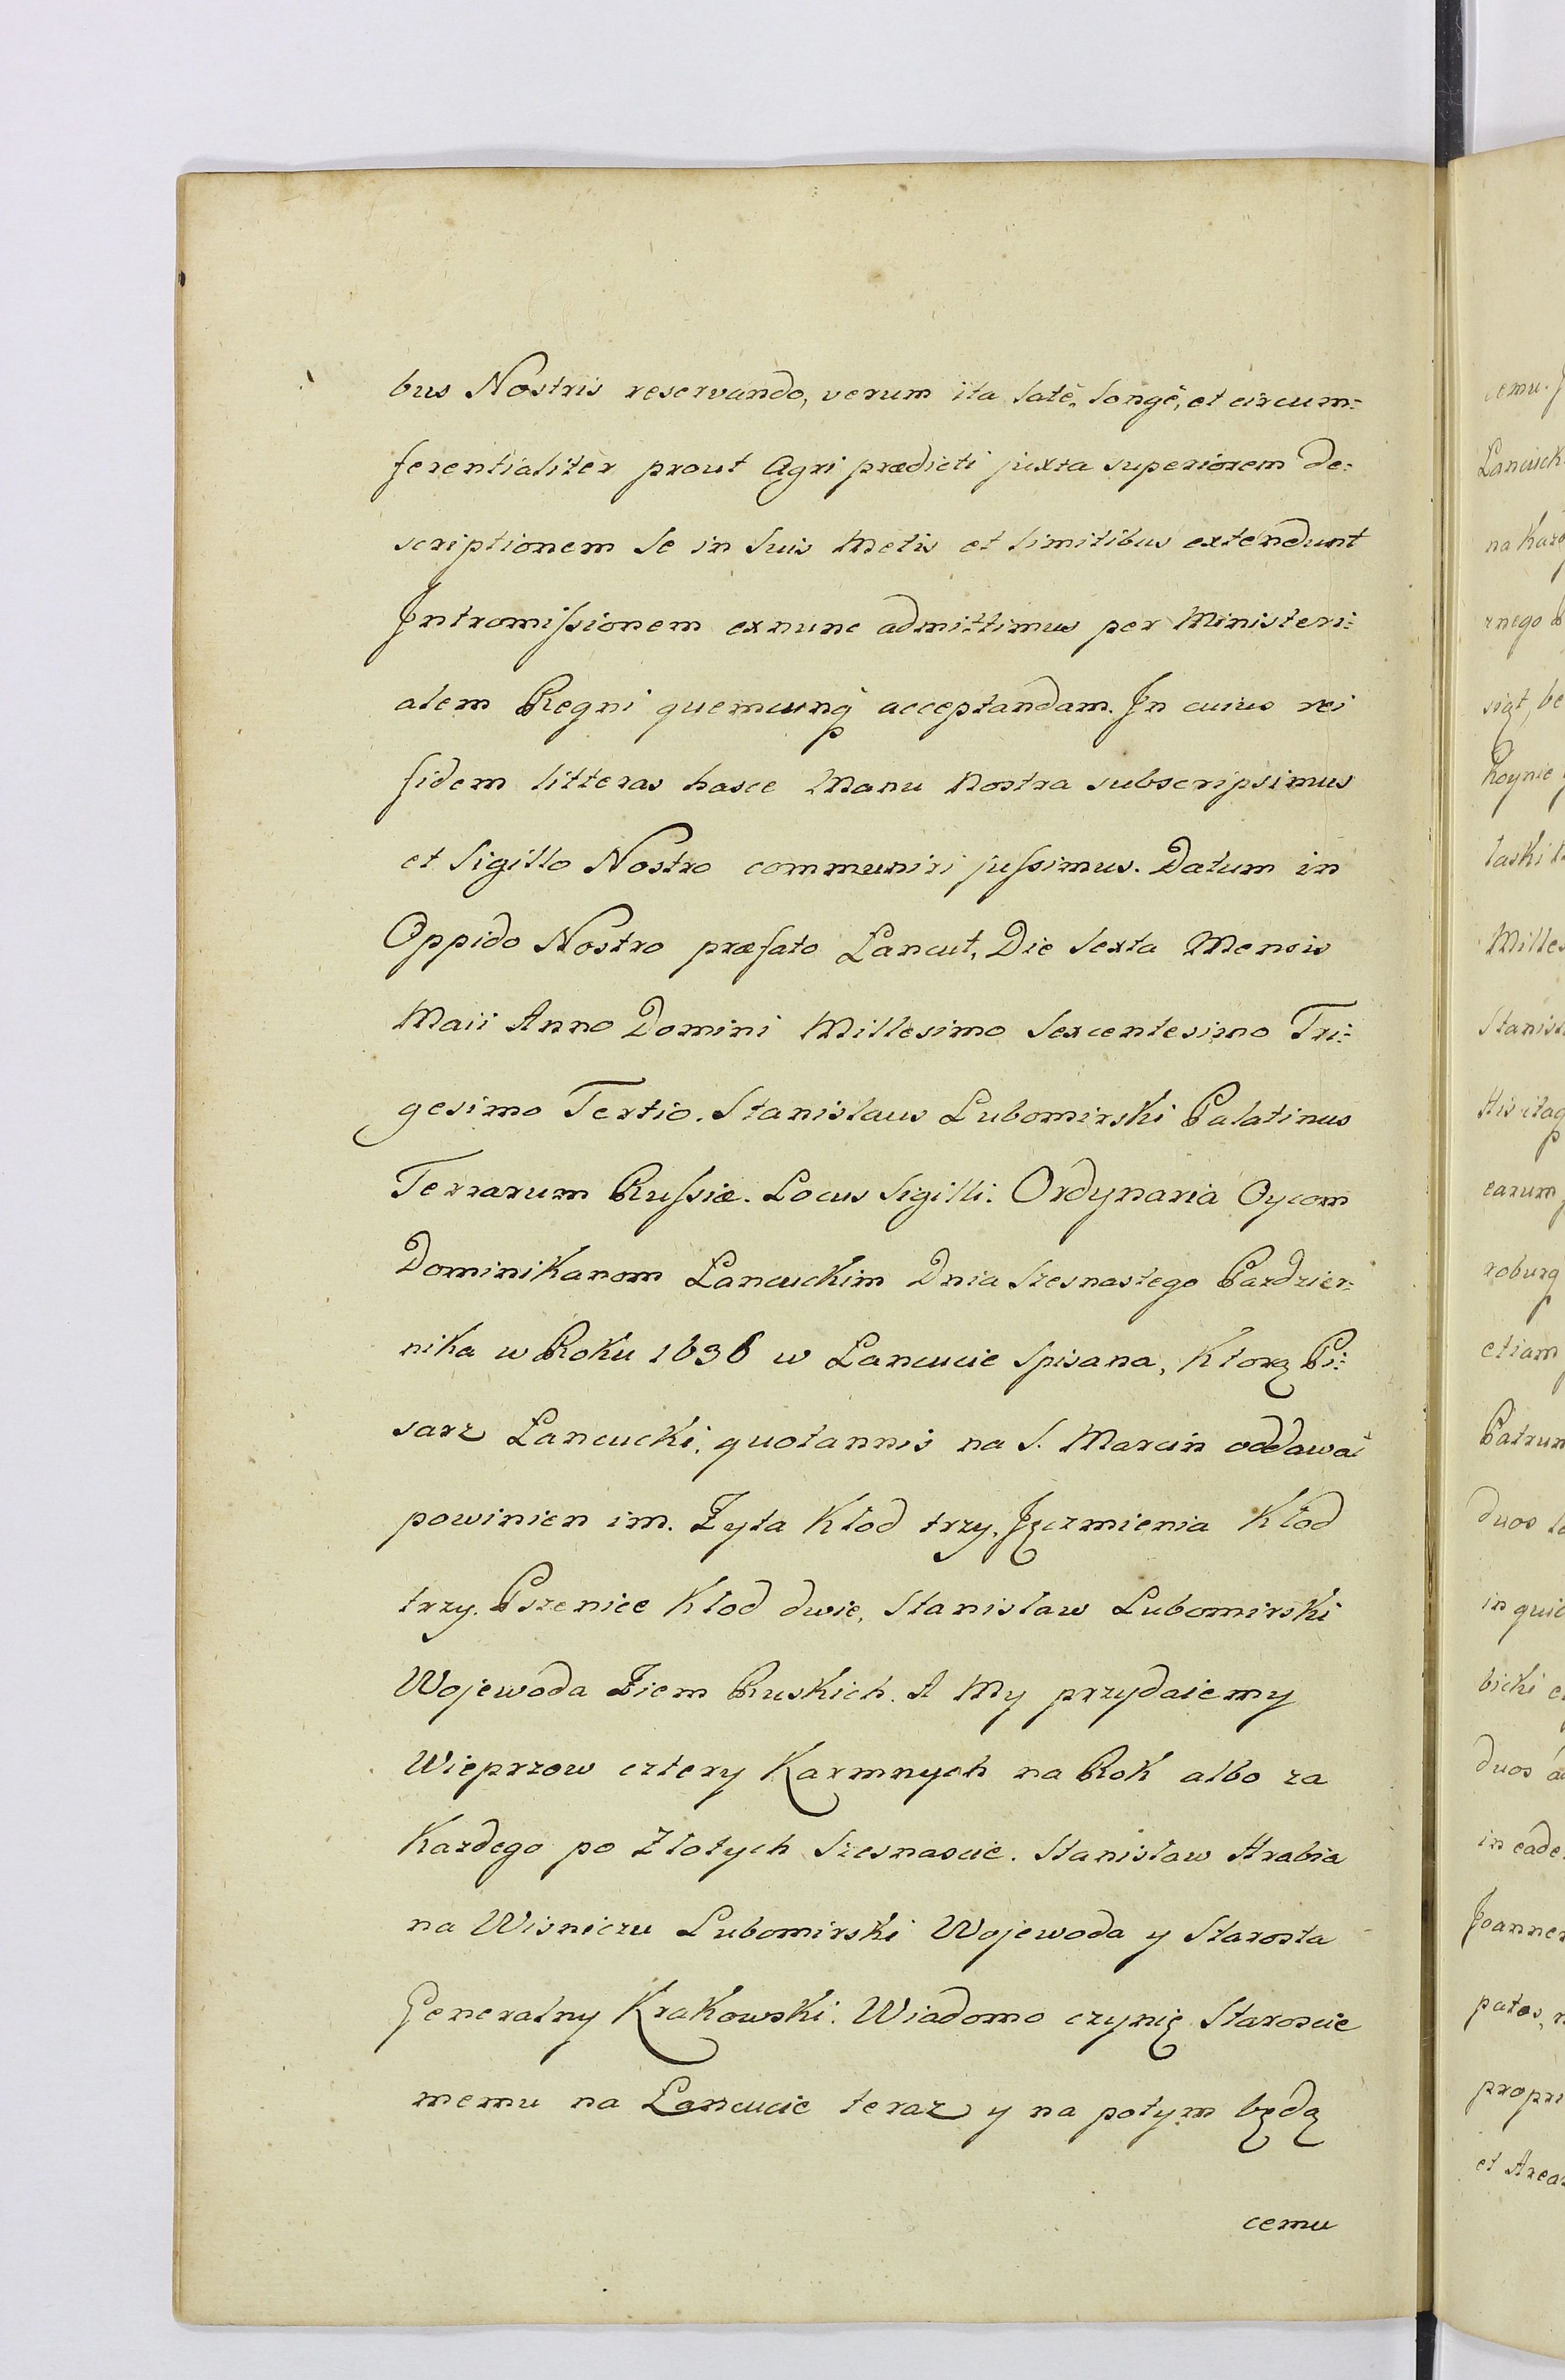 bus Nostris reservando, verum ita latè, longè, et circum=
ferentialiter prout Agri prædicti juxta superiorem de=
scriptionem se in suis Metis et limitibus extendunt
Intromissionem exnunc admittimus per Ministeri=
alem Regni quemcunq acceptandam. In cuius rei
fidem litteras hasce Manu Nostra subscripsimus
et Sigillo Nostro communiri jussimus. Datum in
Oppido Nostro præfato Lancut, Die Sexta Mensis
Maii Anno Domini Millesimo Sexcentesimo Tri=
gesimo Tertio. Stanislaus Lubomirski Palatinus
Terrarum Russiæ. Locus Sigilli. Ordynaria Oycom
Dominikanom Lancuckim Dnia Szesnastego Pazdzier=
nika w Roku 1636 w Lancucie Spisana, Ktorą Pi=
sarz Lancucki, quotannis na S. Marcin oddawać
powinien im. Zyta Kłod trzy, Jęczmienia Kłod
trzy. Pszenice Kłod dwie, Stanisław Lubomirski
Wojewoda Ziem Ruskich. A My przydaiemy
Wieprzow cztery Karmnych na Rok albo za
Kazdego po Złotych Szesnascie. Stanisław Hrabia
na Wisniczu Lubomirski Wojewoda y Starosta
Generalny Krakowski. Wiadomo czynię Staroscie
memu na Lancucie teraz y na potym będą
cemu
cemu.
Lancuck
na Kazd
rnego
siąt, be
hoynie
laski
Milles
Stanisl
His itaq
earum
roburq
etiam
Patrum
duos
in quie
bicki
duos
in eade
Joannes
patos,
propri
et Areas